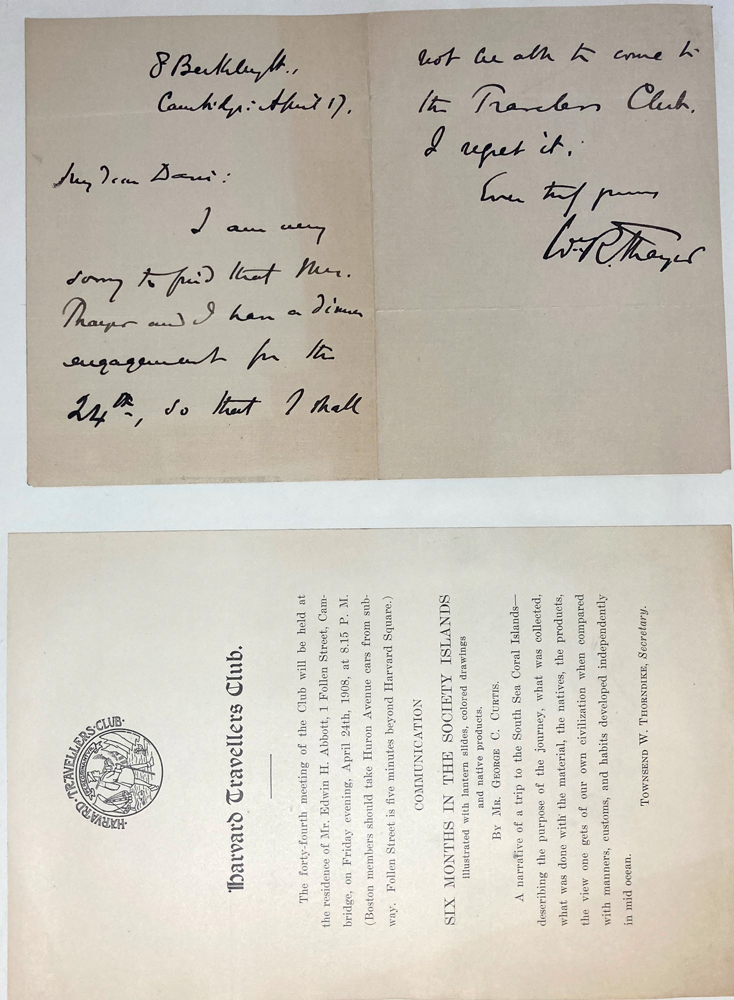 8 Berkeley St.,
Cambridge: April 17.
My dear Davis:
I am very
sorry to find that Mrs.
Thayer and I have a dinner
engagement for the
24th, so that I shall
not be able to come to
the Travelers Club.
I regret it.
Ever truly yours
Wm. R. Thayer
·HARVARD·TRAVELLERS·CLUB·
Harvard Travellers Club.
The forty-fourth meeting of the Club will be held at
the residence of Mr. Edwin H. Abbott, 1 Follen Street, Cam-
bridge, on Friday evening, April 24th, 1908, at 8.15 P. M.
(Boston members should take Huron Avenue cars from sub-
way. Follen Street is five minutes beyond Harvard Square.)
COMMUNICATION
SIX MONTHS IN THE SOCIETY ISLANDS
illustrated with lantern slides, colored drawings
and native products.
By Mr. George C. Curtis.
A narrative of a trip to the South Sea Coral Islands—
describing the purpose of the journey, what was collected,
what was done with the material, the natives, the products,
the view one gets of our own civilization when compared
with manners, customs, and habits developed independently
in mid ocean.
Townsend W. Thorndike, Secretary.